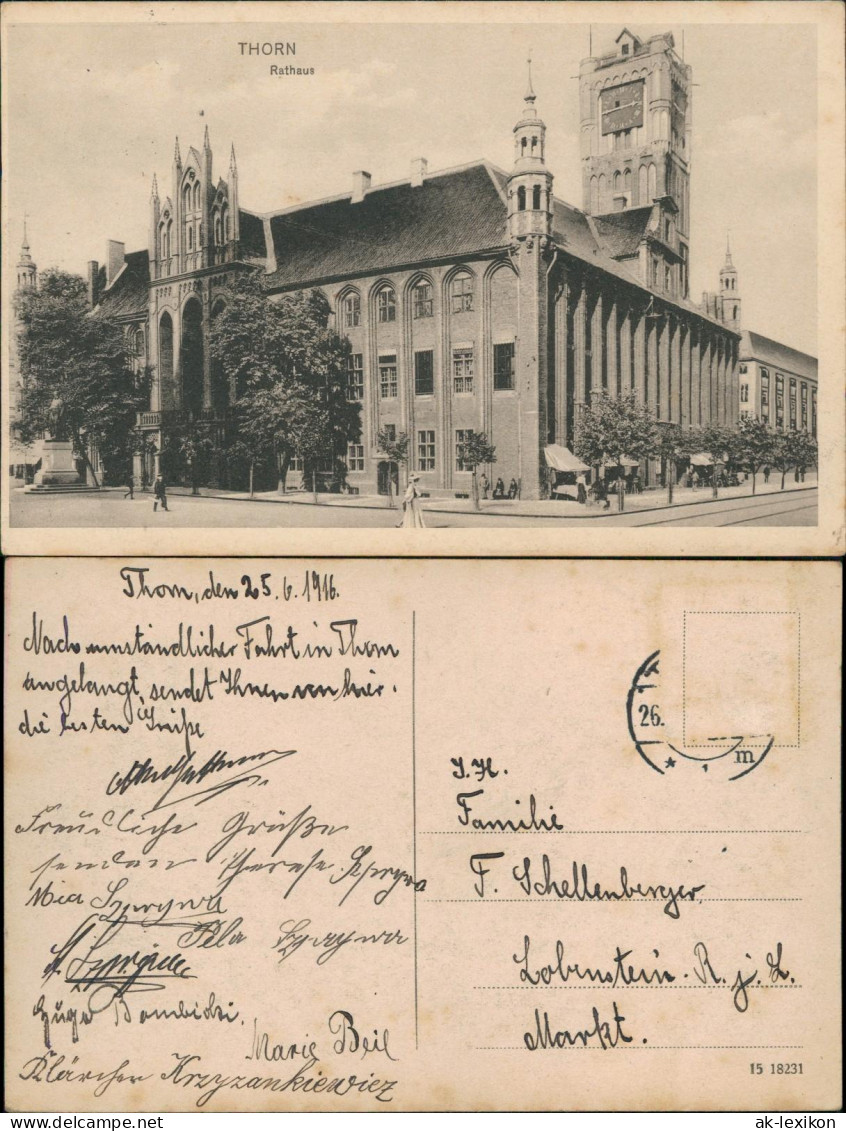 THORN
Rathaus
Thorn, den 25.6.1916.
Nach umständlicher Fahrt in Thorn
angelangt, sendet Ihnen von hier
die besten Grüße
Freundliche Grüße
senden Therese Szprywa
Mia Szprywa
Pela Szprywa
Hugo Dombicki.
Marie Beil
Klärchen Krzyzankiewicz
26.
m
Familie
F. Schellenberger,
Lobenstein. R. j. L.
Markt.
15 18231
ak-lexikon